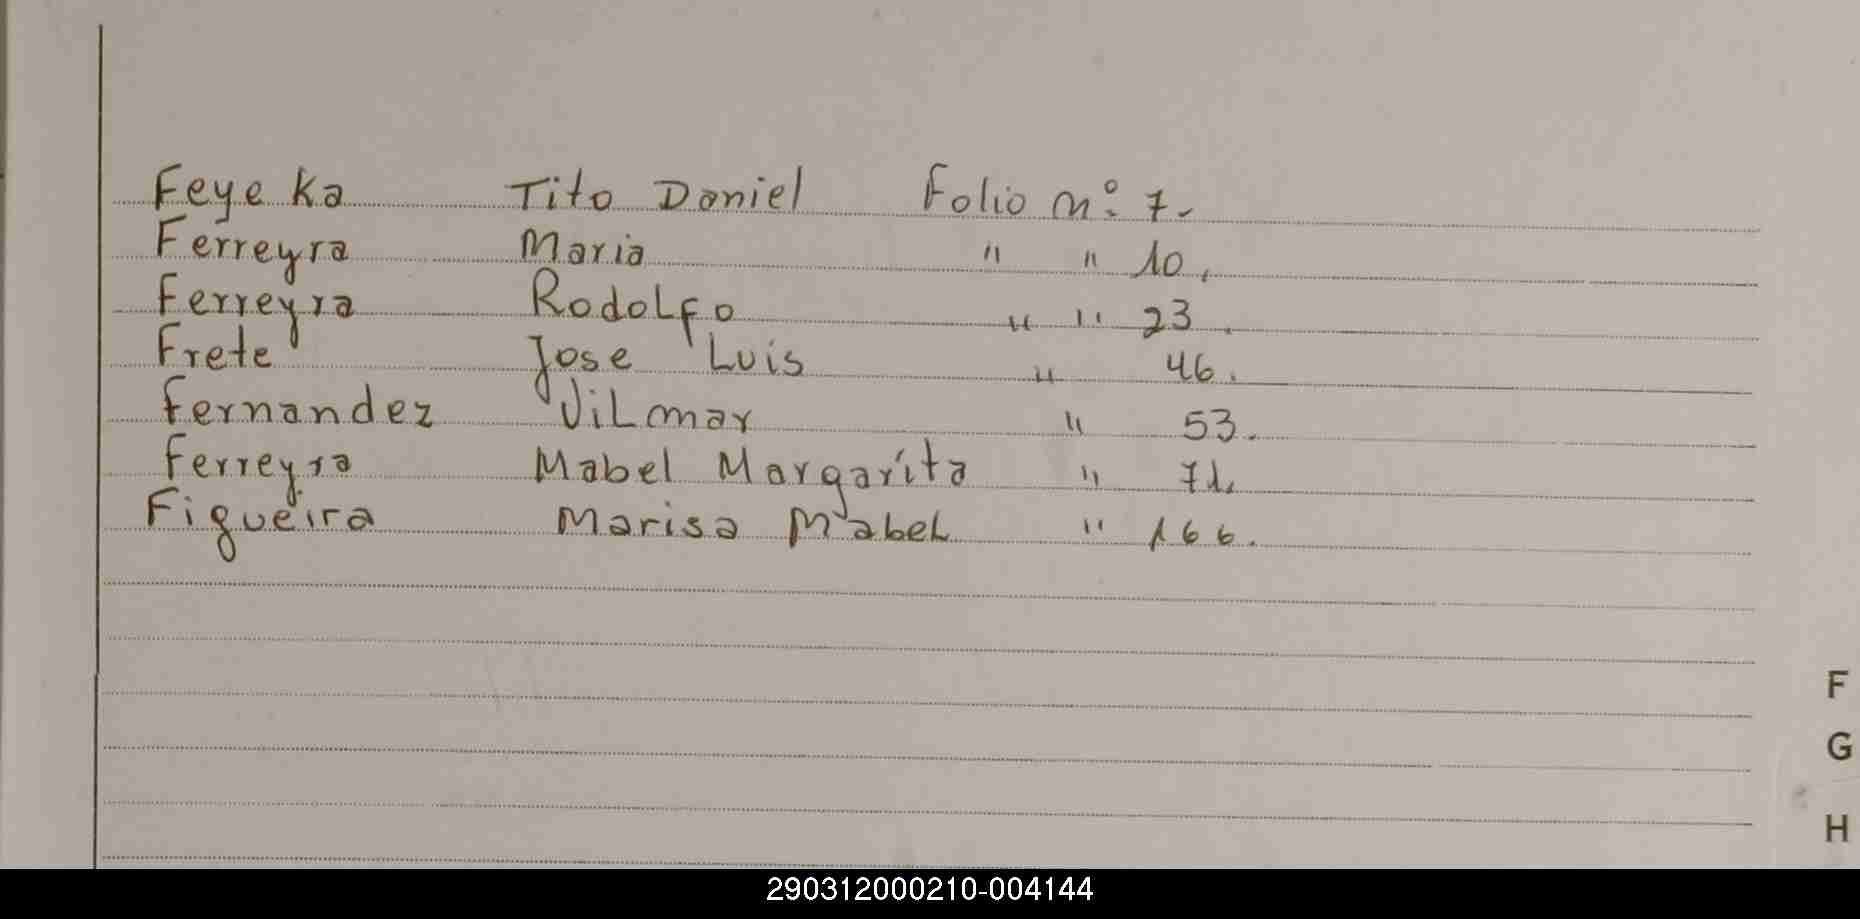 Feyeka Tito Daniel Folio nº 7.
Ferreyra Maria " " 10.
Ferreyra Rodolfo " " 23.
Frete Jose Luis " 46.
Fernandez Vilmar " 53.
Ferreyra Mabel Margarita " 71.
Figueira Marisa Mabel " 166.
F
G
H
290312000210-004144